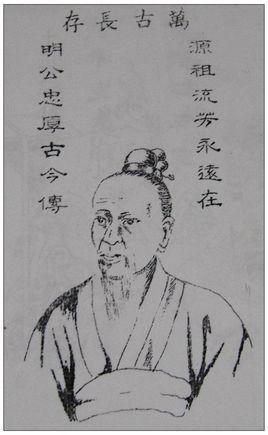 萬古長存
源祖流芳永遠在
明公忠厚古今傳